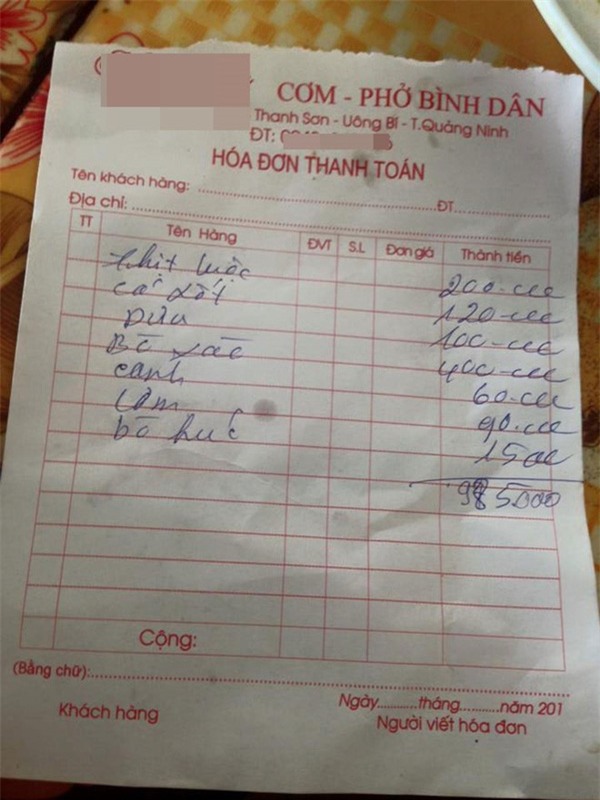 CƠM - PHỞ BÌNH DÂN
Thanh Sơn - Uông Bí - T.Quảng Ninh
ĐT:
HÓA ĐƠN THANH TOÁN
Tên khách hàng: ........................................ĐT...................
Địa chỉ: ............................................................
TT Tên Hàng ĐVT S.L Đơn giá Thành tiền
thịt luộc 200.000
cá sốt 120.000
Dưa 100.000
Bò xào 400.000
canh 60.000
cơm 90.000
bò húc 15000
985000
Cộng:
(Bằng chữ):............................................................
Ngày..........tháng..........năm 201
Khách hàng Người viết hóa đơn